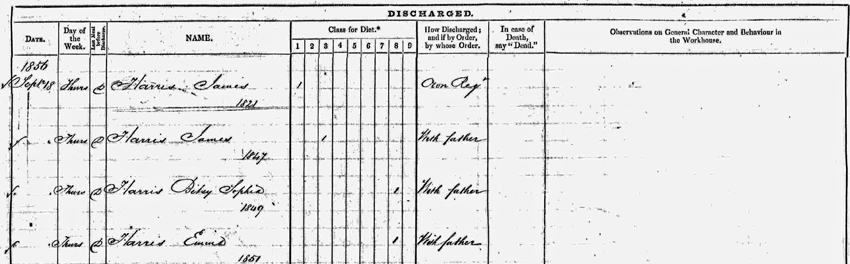 DISCHARGED.
DATE. Day of the Week. Last Meal before Discharge. NAME. Class for Diet.* How Discharged; and if by Order, by whose Order. In case of Death, say "Dead." Observations on General Character and Behaviour in the Workhouse.
1 2 3 4 5 6 7 8 9
1856
Septr 18 Thurs D Harris James 1 Own Reqt
1821
" Thurs D Harris James 3 With father
1847
" Thurs D Harris Betsy Sophia 8 With father
1849
" Thurs D Harris Emma 8 With father
1851